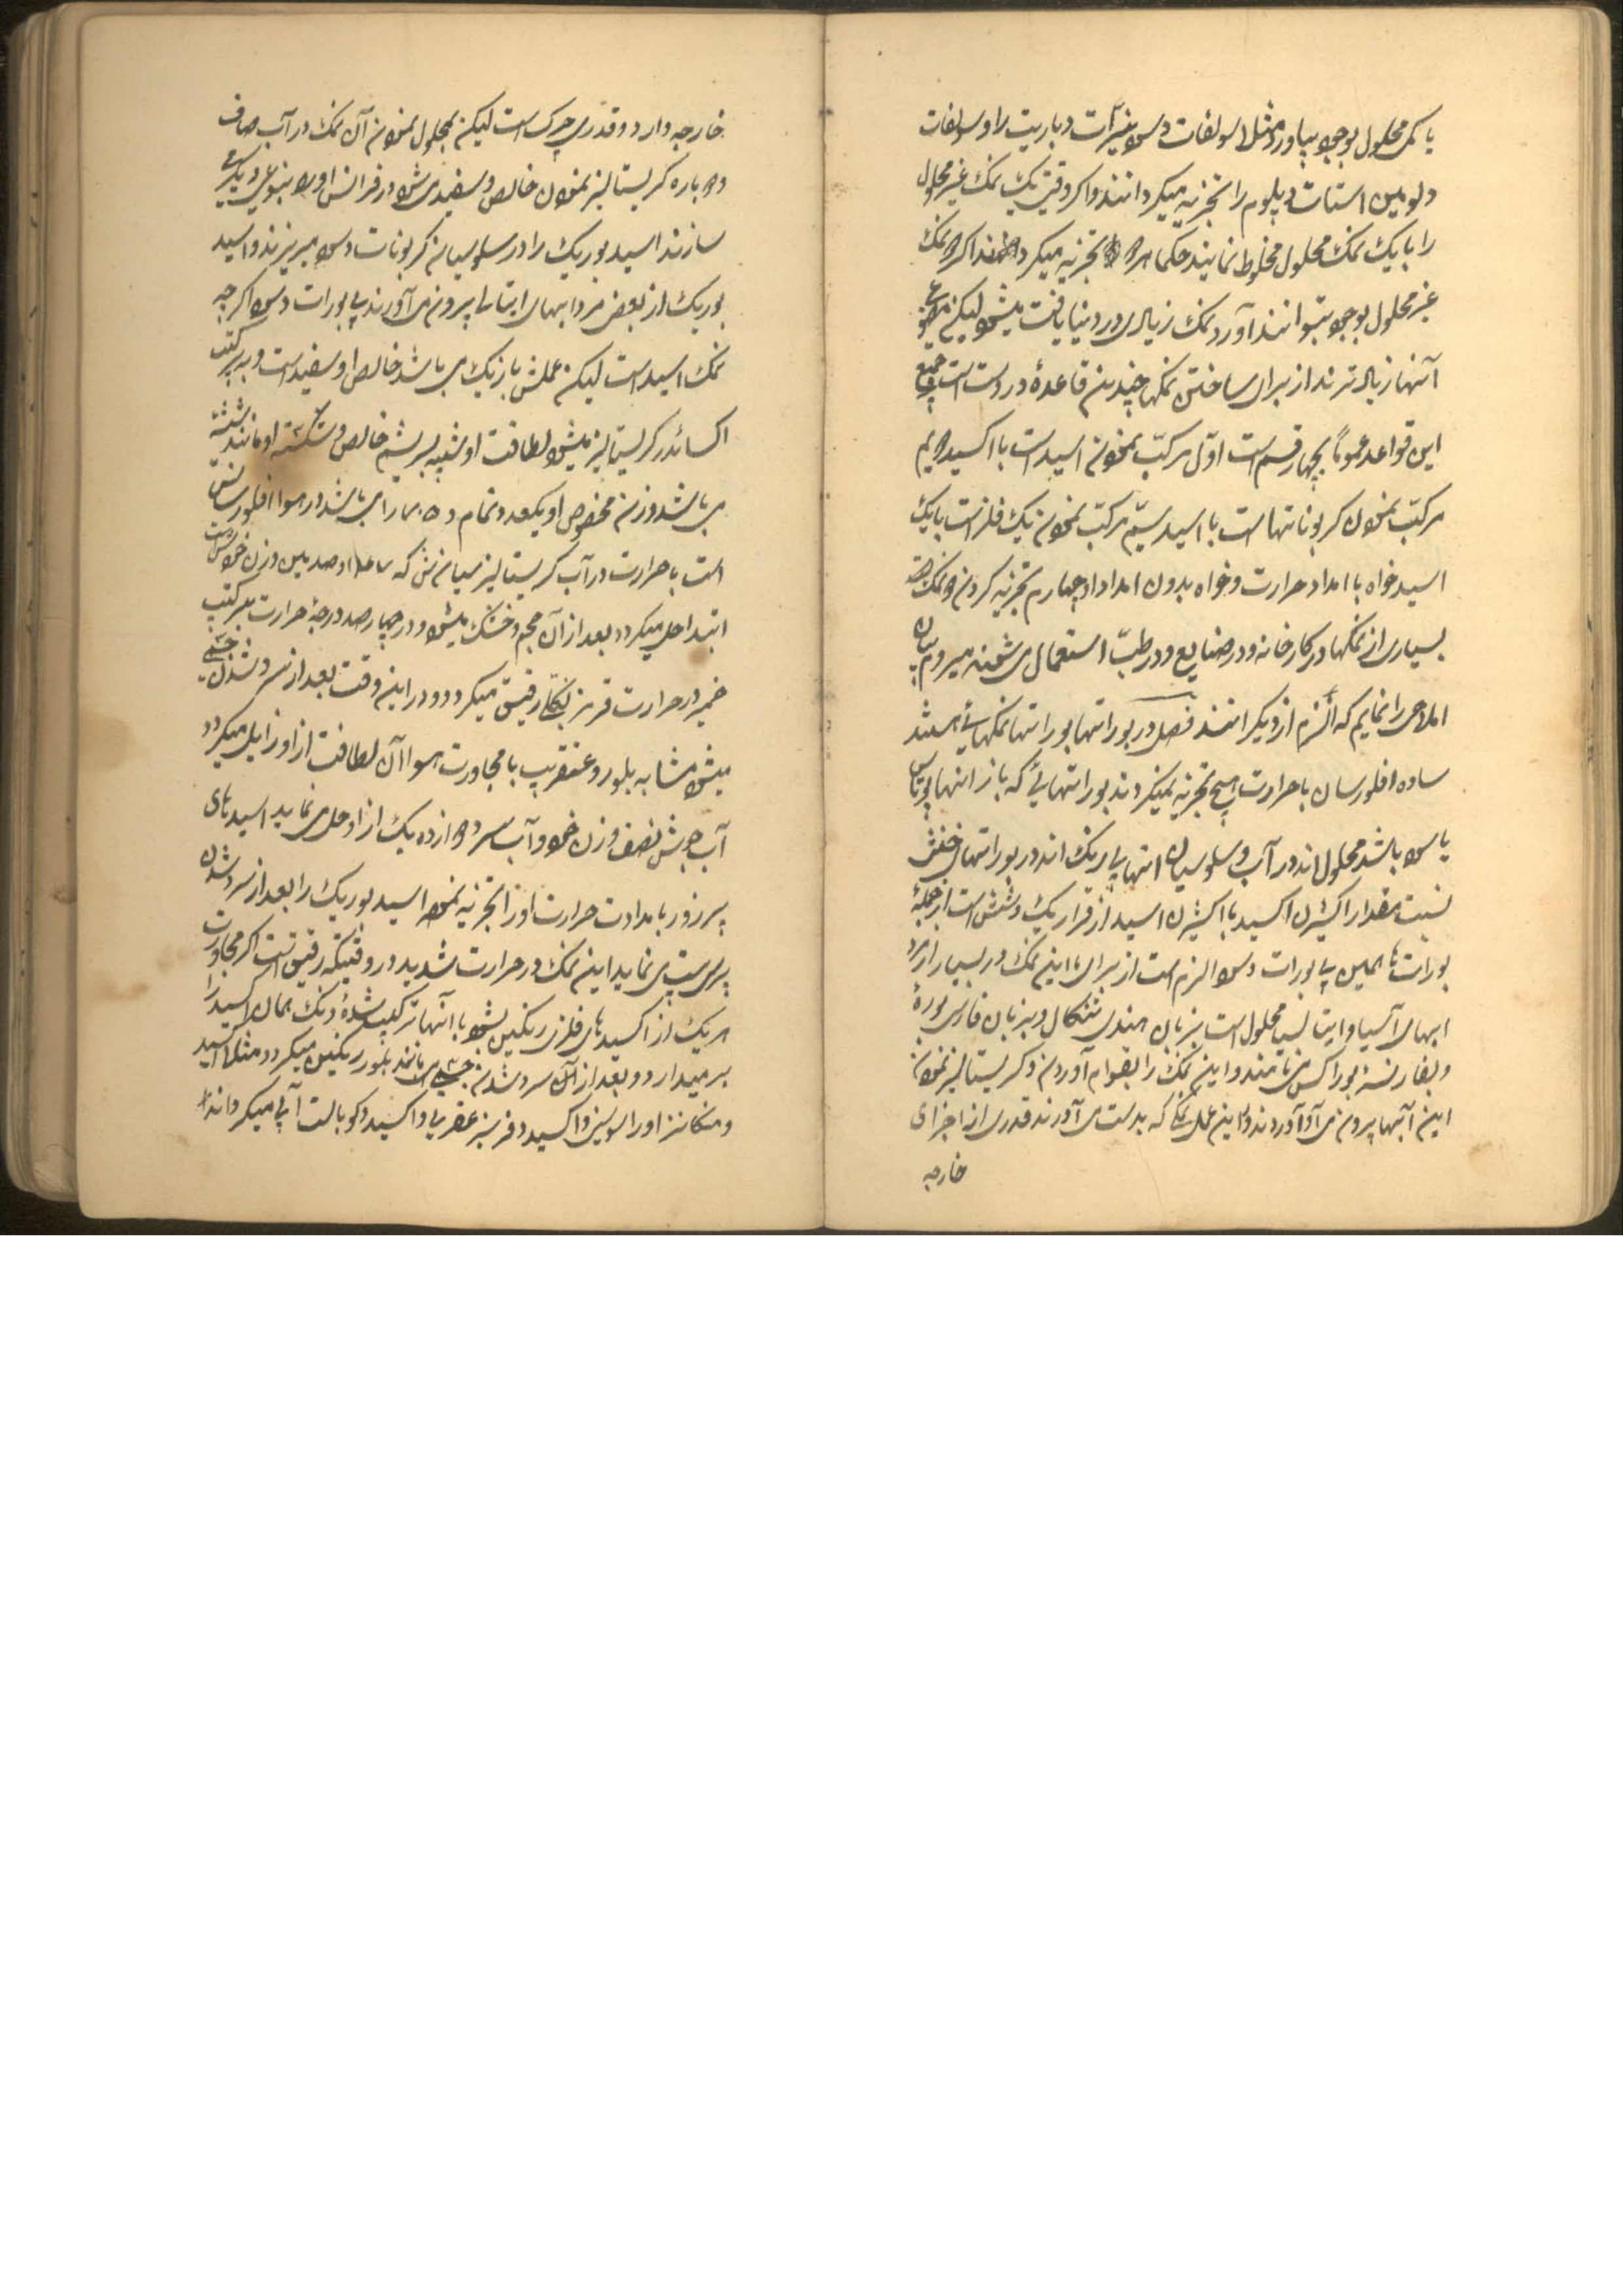 یا کمی محلول بوجود بیاورد مثلا سولفات دسود نیترات دباریت را و سولفات
دلومین استات دپلوم را تجزیه میکردانند و اکر وقتی یک نمک غیر محلول
را با یک نمک محلول مخلوط نمایند حکما هر دو تجزیه میکردند اکر دو نمک
غیر محلول بوجود بتوانند آورد نمک زیادی در دنیا یافت میشود لیکن
آنها زیادترند از برای ساختن نمکها چندین قاعده در دست است جمیع
این قواعد عموماً بچهار قسم است اوّل مرکّب نمودن اسید است با اکسید دویم
مرکّب نمودن کربوناتها است با اسید سیّم مرکّب نمودن یک فلز است با یک
اسید خواه با امداد حرارت و خواه بدون امداد او چهارم تجزیه کردن دو نمک
بسیاری از نمکها در کارخانه و در صنایع و در طبّ استعمال می شوند میروم بیان
املاحی را نمایم که الزم از دیکرانند فصل در بوراتها بوراتها نمکهائی هستند
ساده افلورسان با حرارت هیچ تجزیه نمیکردند بوراتهائی که باز انها پوتاس
یا سود باشد محلول اند در آب و سلوسیان انها بی رنک اند در بوراتهای خنثی
نسبت مقدار اکثیژن اکسید با اکثیژن اسید از قرار یک و شش است از جمله
بوراتها همین بی بورات دسود الزم است از برای ما این نمک در بسیار از
ابهای آسیا و ایتالیا محلول است بزبان هندی تنکال و بزبان فارسی بوره
و بفارنسه بوراکس می نامند و این نمک را بقوام آوردن و کریستالیز نمودن
این آبها بیرون می آورند و این عمل نمک که بدست می آورند قدری از اجزای
خارجه
خارجه دارد و قدری چرک است لیکن بمحلول نمودن آن نمک در آب صاف
دوباره کریستالیز نمودن خالص و سفید می شود در فرانس او را بنوعی دیکر می
سازند اسید بوریک را در سلوسیان کربونات دسود میریزند و اسید
بوریک از بعضی مردابهای ایتالیا بیرون می آورند بی بورات دسود اکر چه
نمک اسید است لیکن عملش بازیک می باشد خالص او سفید است و به ترکیب
اکسائدر کریستالیز میشود لطافت او شبیه بریشم خالص و شکسته او مانند شیشه
می باشد وزن مخصوص او یکعدد تمام و می باشد در هوا افلورسانس
است با حرارت در آب کریستالیزسیانش که صدمین وزن خودش است
ابتدا حل میکردد بعد از آن حجم و خشک میشود و در چهار صد درجه حرارت بترکیب
خمیر در حرارت قرمز بکلّی رقیق میکردد و در این وقت بعد از سرد شدن جسمی
میشود مشابه بلور و عنقریب با مجاورت هوا آن لطافت از او زایل میکردد
آب جوش نصف وزن خود و آب سرد دوازده یک از او حل می نماید اسیدهای
پرزور بامدادت حرارت او را تجزیه نموده اسید بوریک را بعد از سرد شدن
پرسیپیته می نماید این نمک در حرارت شدید در وقتیکه رقیق است اکر مجاورت
هر یک از اکسیدهای فلزی رنکین بشود با آنها ترکیب شده و رنک همان اکسید را
برمیدارد و بعد از آن سرد شدن جسمی مانند بلور رنکین میکردد مثلا اکسید
د منکانز او را سوسنی و اکسید دفر سبز عقربی و اکسید دکوبالت آبی میکرداند